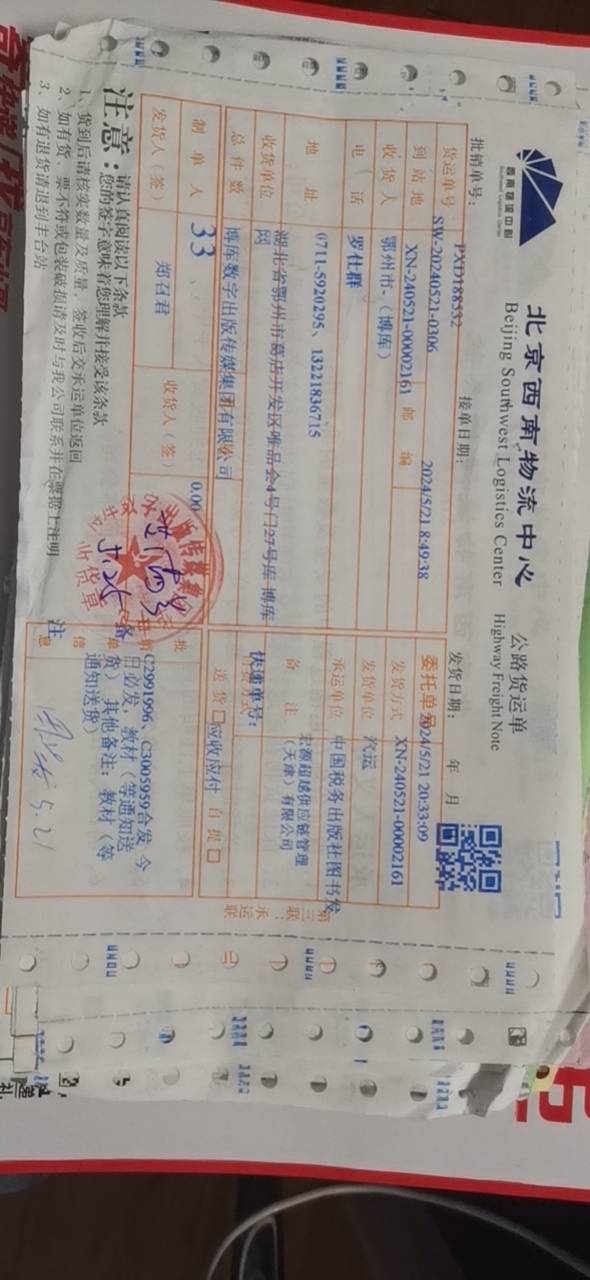 西南物流中心
Southwest Logistics Center
北京西南物流中心
Beijing Southwest Logistics Center
公路货运单
Highway Freight Note
批销单号：PXD188532
接单日期：2024/5/21 8:49:38
发货日期： 年 月
2024/5/21 20:33:09
货运单号 SW-20240521-0306
委托单号 XN-240521-00002161
到站地 XN-240521-00002161 邮编
发货方式 汽运
收货人 鄂州市-（博库）
发货单位 中国税务出版社图书发
电话 罗仕群
承运单位 宏源超越供应链管理（天津）有限公司
地址 0711-5920295、13221836715
备注
湖北省鄂州市葛店开发区唯品会4号门27号库 博库网
快递单号：
收货单位 博库数字出版传媒集团有限公司
送货 □ 应收应付 自提 □
总件数 33
0.00
制单人 郑召君
C2991996、C3005959合发 今日必发，教材（等通知送货） 其他备注：教材（等通知送货）
发货人（签）
收货人（签）
5.25
收货章
备注
信息
5.21
第三联：承运联
注意：
请认真阅读以下条款
您的签字意味着您理解并接受该条款
1、货到后请核实数量及质量，签收后交承运单位返回
2、如有货、票不符或包装破损请及时与我公司联系并在票据上注明
3、如有退货请退到丰台站